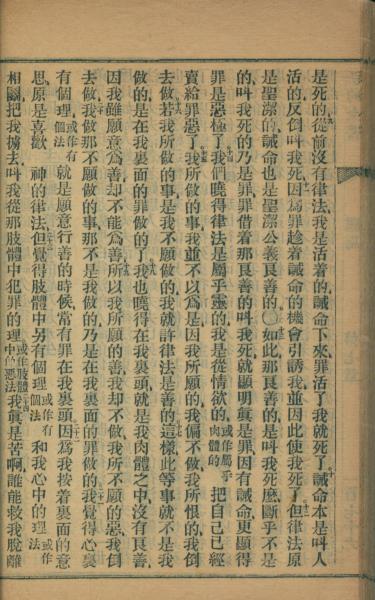 是死的從前沒有律法我是活着的誡命下來罪活了我就死了誡命本是叫人
活的反倒叫我死因爲罪趁着誡命的機會引誘我並因此使我死了但律法原
是聖潔的誡命也是聖潔公義良善的〇如此那良善的是叫我死麽斷乎不是
的叫我死的乃是罪罪借着那良善的叫我死就顯明眞是罪因有誡命更顯得
罪是惡極了我們曉得律法是屬乎靈的我是從情欲的或作屬乎肉體的把自己已經
賣給罪惡了我所做的事我並不以爲是因我所願的我偏不做我所恨的我倒
去做若我所做的事是我不願做的我就許律法是善的這樣此等事就不是我
做的是在我裏面的罪做的了我也曉得在我裏頭就是我肉體之中沒有良善
因我雖願意爲善却不能爲善所以我所願的善我却不做我所不願的惡我倒
去做我做那不願做的事那不是我做的乃是在我裏面的罪做的我覺得心裏
有個理或作有個法就是願意行善的時候常有罪在我裏頭因爲我按着裏面的意
思原是喜歡 神的律法但覺得肢體中另有個理或作有個法和我心中的理或作法
相鬭把我擄去叫我從那肢體中犯罪的理或作肢體中的惡法我眞是苦啊誰能救我脫離